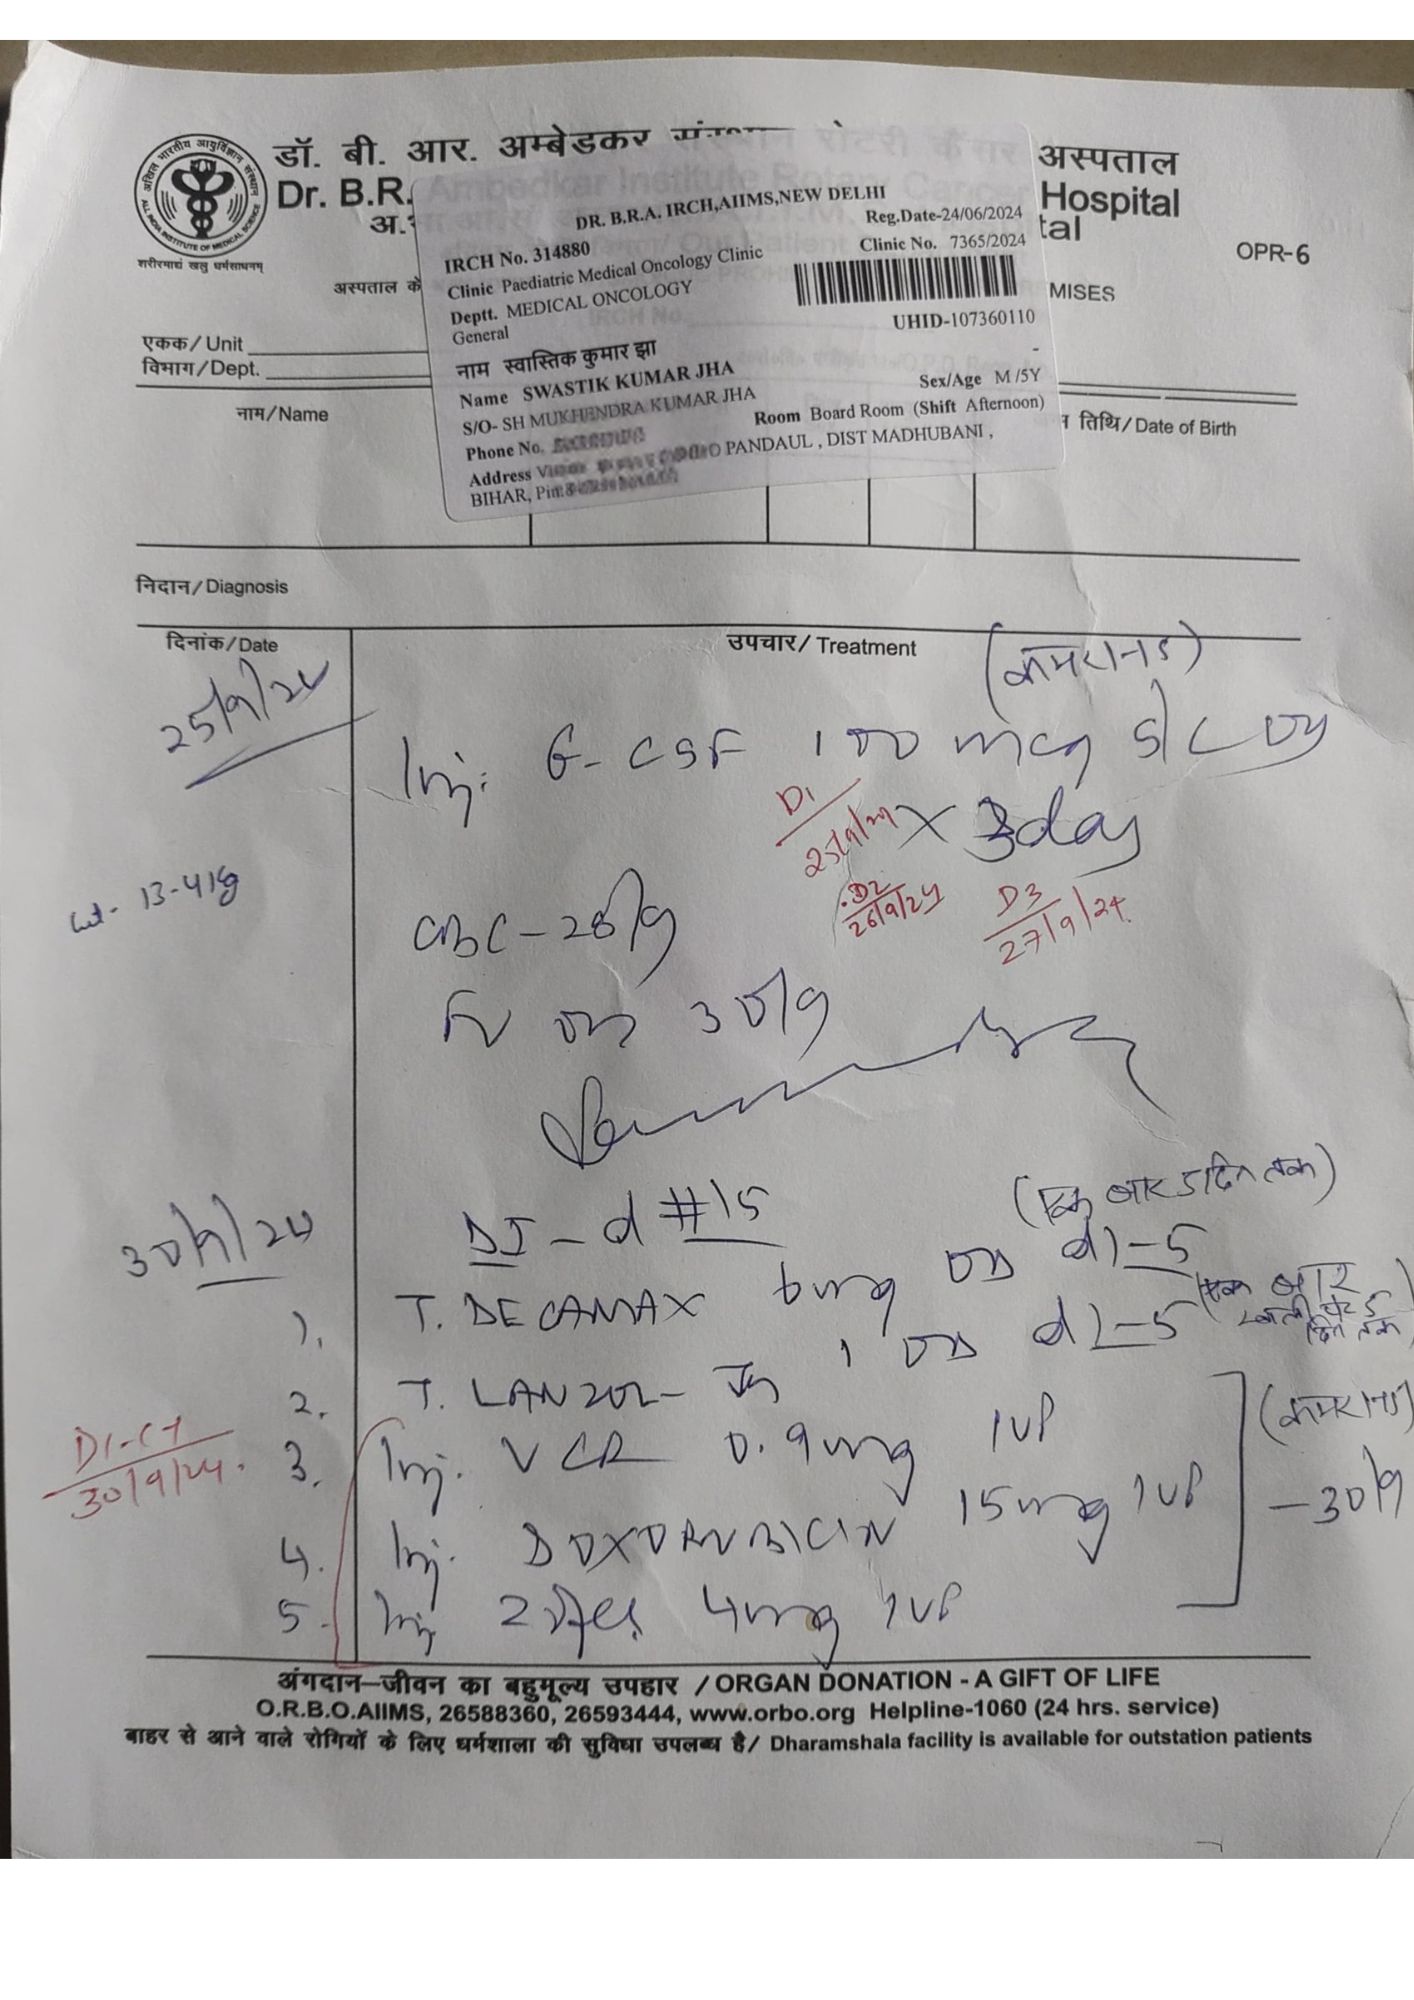 डॉ. बी. आर. अम्बेडकर
अस्पताल
Dr. B.R.
Hospital
OPR-6
MISES
अस्पताल के
DR. B.R.A. IRCH,AIIMS,NEW DELHI
IRCH No. 314880
Reg.Date-24/06/2024
Clinic Paediatric Medical Oncology Clinic
Clinic No. 7365/2024
Deptt. MEDICAL ONCOLOGY
General
UHID-107360110
नाम स्वास्तिक कुमार झा
Name SWASTIK KUMAR JHA
Sex/Age M /5Y
S/O- SH MUKHENDRA KUMAR JHA
Phone No.
Room Board Room (Shift Afternoon)
Address PANDAUL , DIST MADHUBANI ,
BIHAR,
शरीरमाद्यं खलु धर्मसाधनम्
एकक/ Unit
विभाग/Dept.
नाम/Name
तिथि/ Date of Birth
निदान/ Diagnosis
दिनांक/Date
उपचार/ Treatment
25/9/24
Inj. G-CSF 100 mcg S/C
D1
25/9/24
x 3day
wt- 13.41kg
D2
26/9/24
D3
27/9/24
CBC - 28/9
on 30/9
30/9/24
DI - d #15
(एक बार 5 दिन तक)
1. T. DECAMAX 6mg OD d1-5
(एक बार
खाली पेट 5
दिन तक
2. T. LANZOL- 1 OD d1-5
D1-CT
30/9/24
3. Inj. VCR 0.9mg IVP
- 30/9
4. Inj. DOXORUBICIN 15mg IVP
5. Inj 4mg IVP
अंगदान–जीवन का बहुमूल्य उपहार / ORGAN DONATION - A GIFT OF LIFE
O.R.B.O.AIIMS, 26588360, 26593444, www.orbo.org Helpline-1060 (24 hrs. service)
बाहर से आने वाले रोगियों के लिए धर्मशाला की सुविधा उपलब्ध है/ Dharamshala facility is available for outstation patients